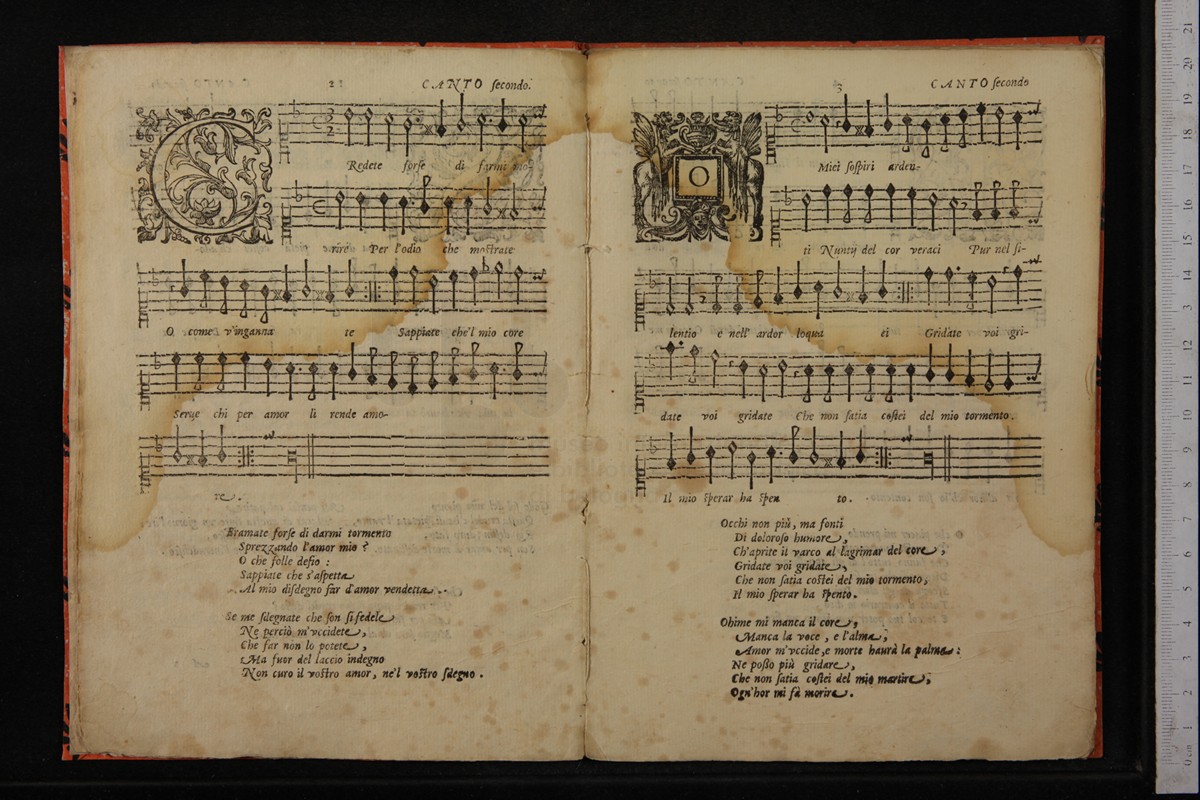 21 CANTO secondo.
C
Redete forse di farmi mo-
rire Per l'odio che mostrate
O come v'inganna te Sappiate che'l mio core
Serue chi per amor li rende amo-
re.
Bramate forse di darmi tormento
Sprezzando l'amor mio ?
O che folle desio :
Sappiate che s'aspetta
Al mio disdegno far d'amor vendetta.
Se me sdegnate che son sì fedele
Ne perciò m'vccidete,
Che far non lo potete,
Ma fuor del laccio indegno
Non curo il vostro amor, ne'l vostro sdegno.
3 CANTO secondo
O
Miei sospiri arden-
ti Nuntij del cor veraci Pur nel si-
lentio e nell' ardor loqua ci Gridate voi gri-
date voi gridate Che non satia costei del mio tormento.
Il mio sperar ha spen to.
Occhi non più, ma fonti
Di doloroso humore,
Ch'aprite il varco al lagrimar del core,
Gridate voi gridate,
Che non satia costei del mio tormento,
Il mio sperar ha spento.
Ohime mi manca il core,
Manca la voce, e l'alma,
Amor m'vccide, e morte haurà la palma:
Ne posso più gridare,
Che non satia costei del mio martire,
Ogn'hor mi fà morire.
0 cm 1 2 3 4 5 6 7 8 9 10 11 12 13 14 15 16 17 18 19 20 21